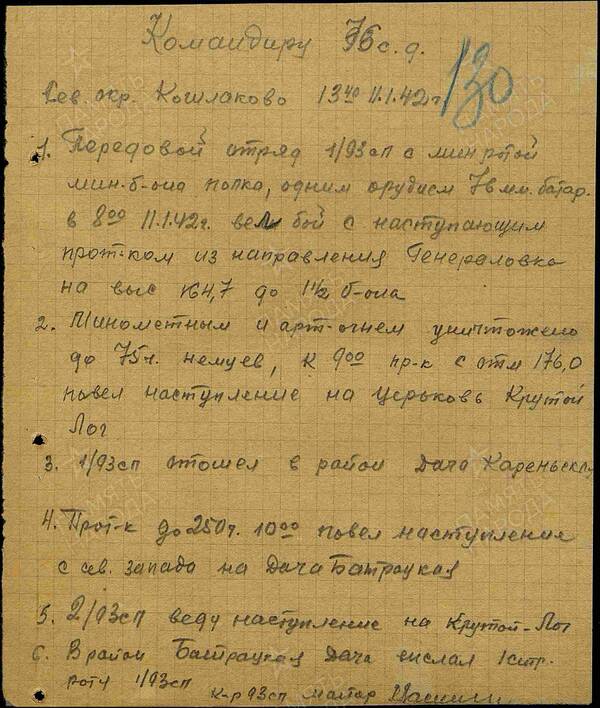 Командиру 76 с.д.
130
Сев. окр. Кошлаково 13⁴⁰ 11.1.42г.
1. Передовой отряд 1/93сп с минротой
мин.б-она полка, одним орудием 76мм. батар.
в 8⁰⁰ 11.1.42г. вел бой с наступающим
прот-ком из направления Генераловка
на выс 164,7 до 1½ б-она
2. Минометным и арт-огнем уничтожено
до 75ч. немцев, к 9⁰⁰ пр-к с отм 176,0
повел наступление на церковь Крутой
Лог
3. 1/93сп отошел в район Дача
4. Прот-к до 250ч. 10⁰⁰ повел наступления
с сев. запада на Дача Батрацкая
5. 2/93сп веду наступление на Крутой-Лог
6. В район Батрацкая Дача выслал 1 стр.
роту 1/93сп
К-р 93сп майор
ПАМЯТЬ
НАРОДА